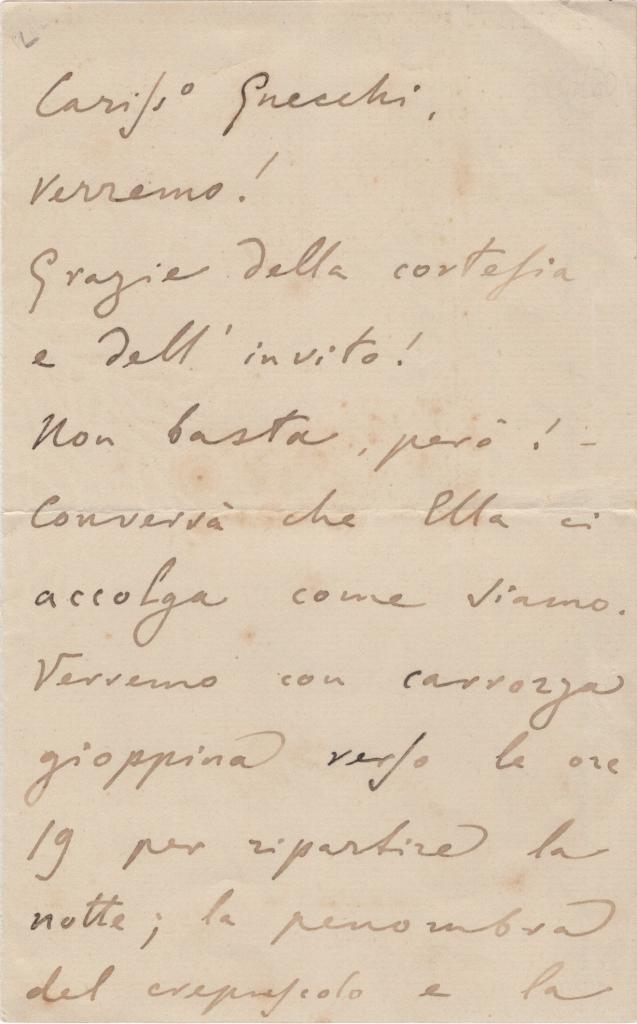 Cariſsº Gnecchi,
verremo!
Grazie della corteſia
e dell' invito!
Non basta, però! -
Converrà che Ella ci
accolga come siamo.
Verremo con carrozza
gioppina verſo le ore
19 per ripartire la
notte; la penombra
del crepuſcolo e la